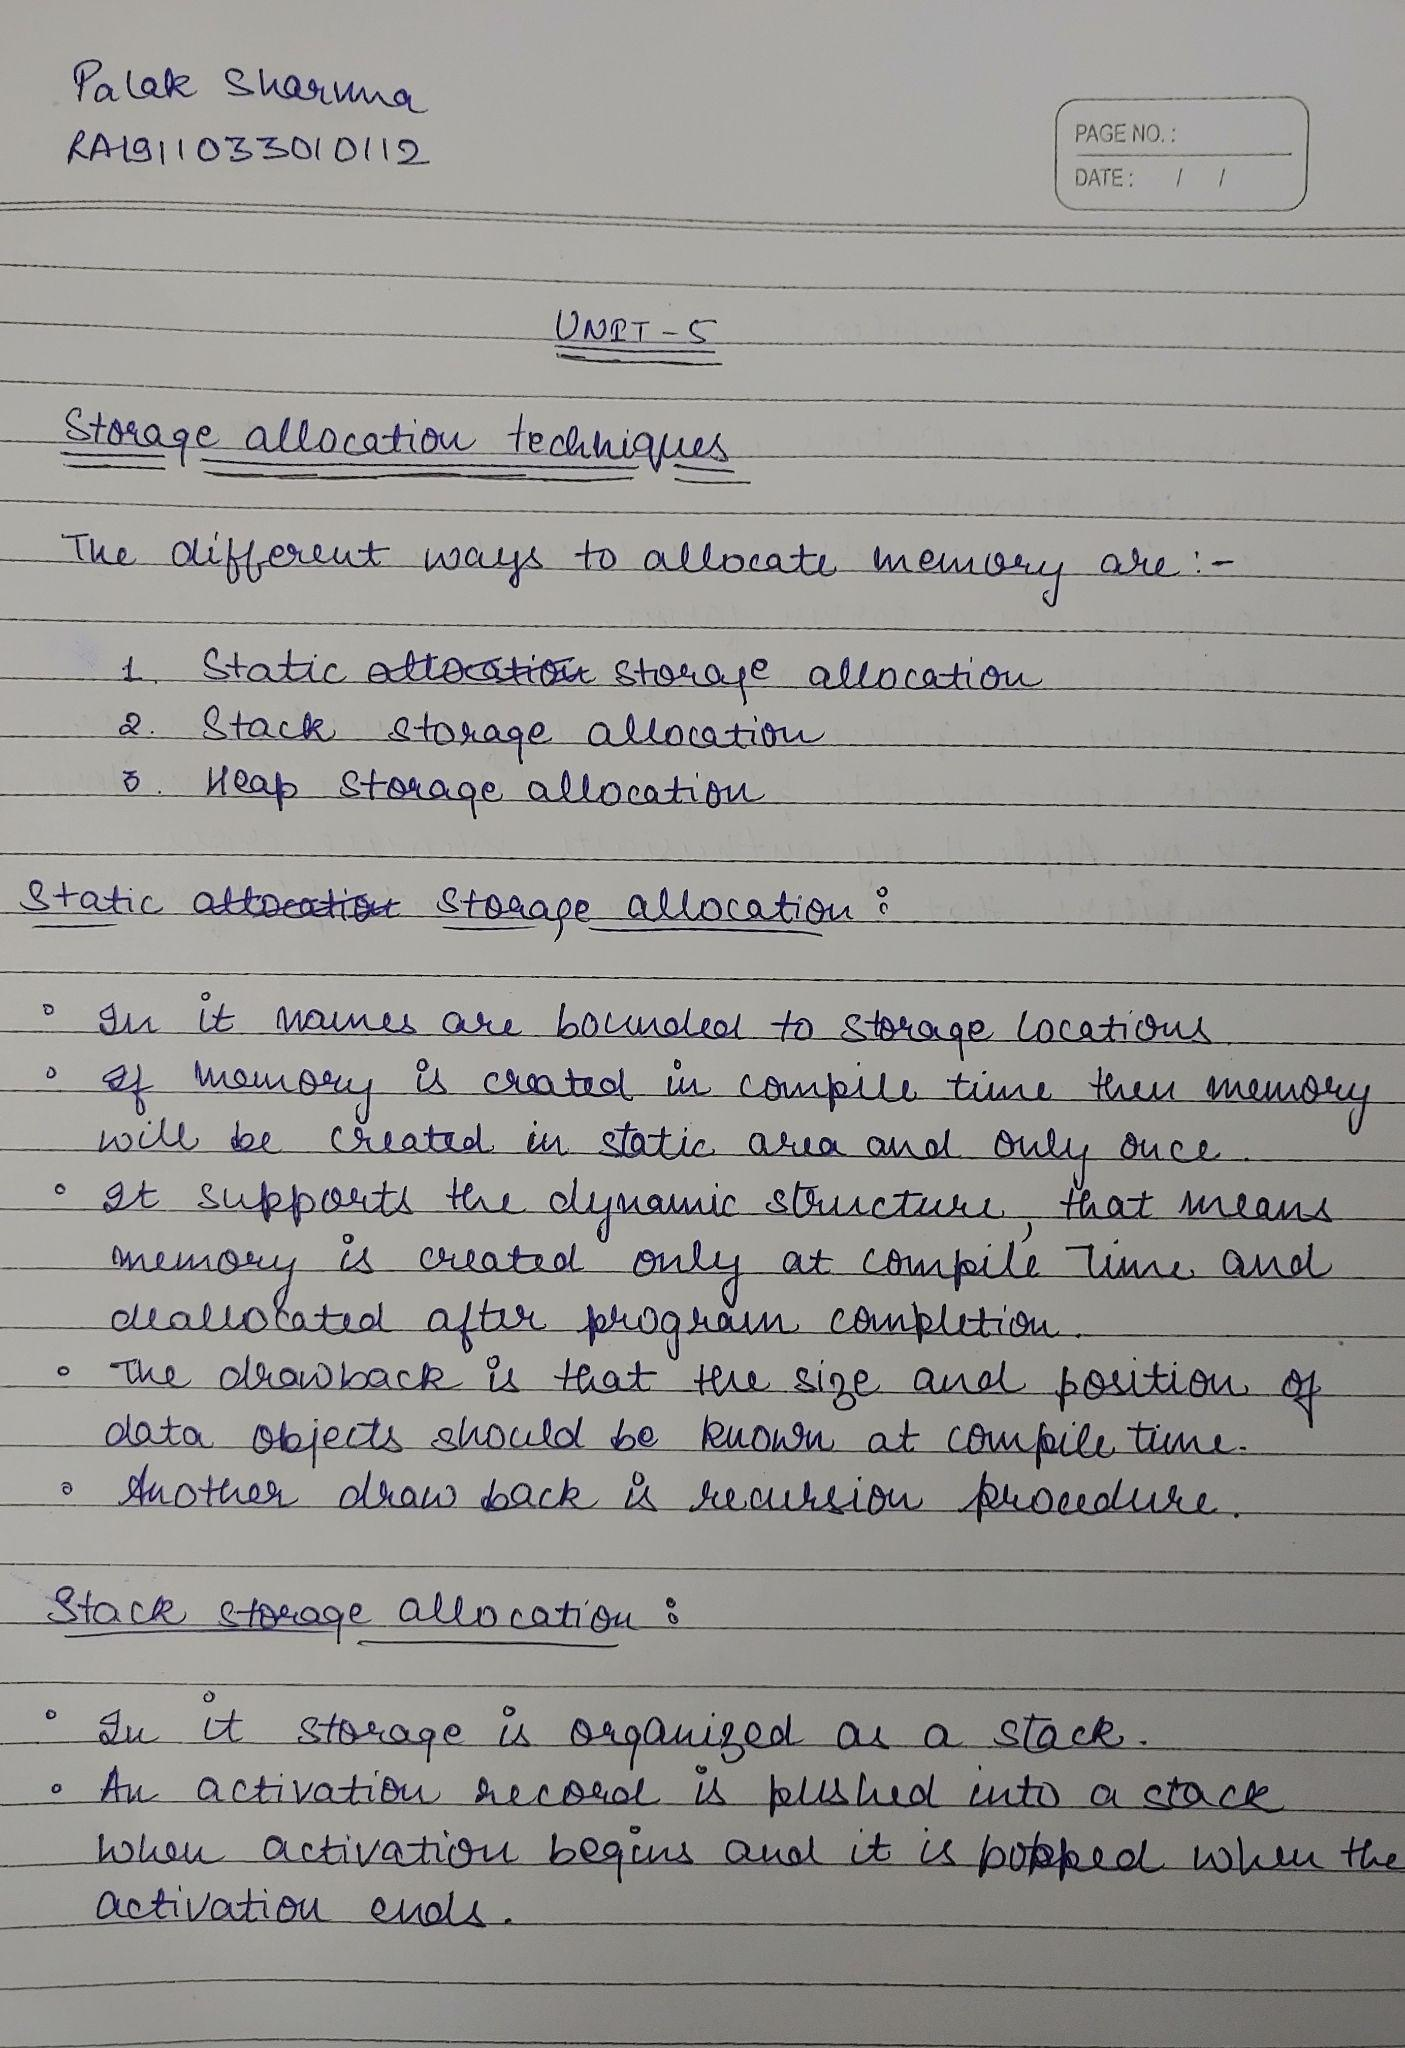 Palak Sharma
RA1911033010112
PAGE NO.:
DATE: / /
UNIT-5
Storage allocation techniques
The different ways to allocate memory are:-
1. Static allocation storage allocation
2. Stack storage allocation
3. Heap storage allocation
Static allocation storage allocation:
• In it names are bounded to storage locations
• If memory is created in compile time then memory
will be created in static area and only once.
• It supports the dynamic structure, that means
memory is created only at compile time and
deallocated after program completion.
• The drawback is that the size and position of
data objects should be known at compile time.
• Another draw back is recursion procedure.
Stack storage allocation:
• In it storage is organized as a stack.
• An activation record is pushed into a stack
when activation begins and it is popped when the
activation ends.